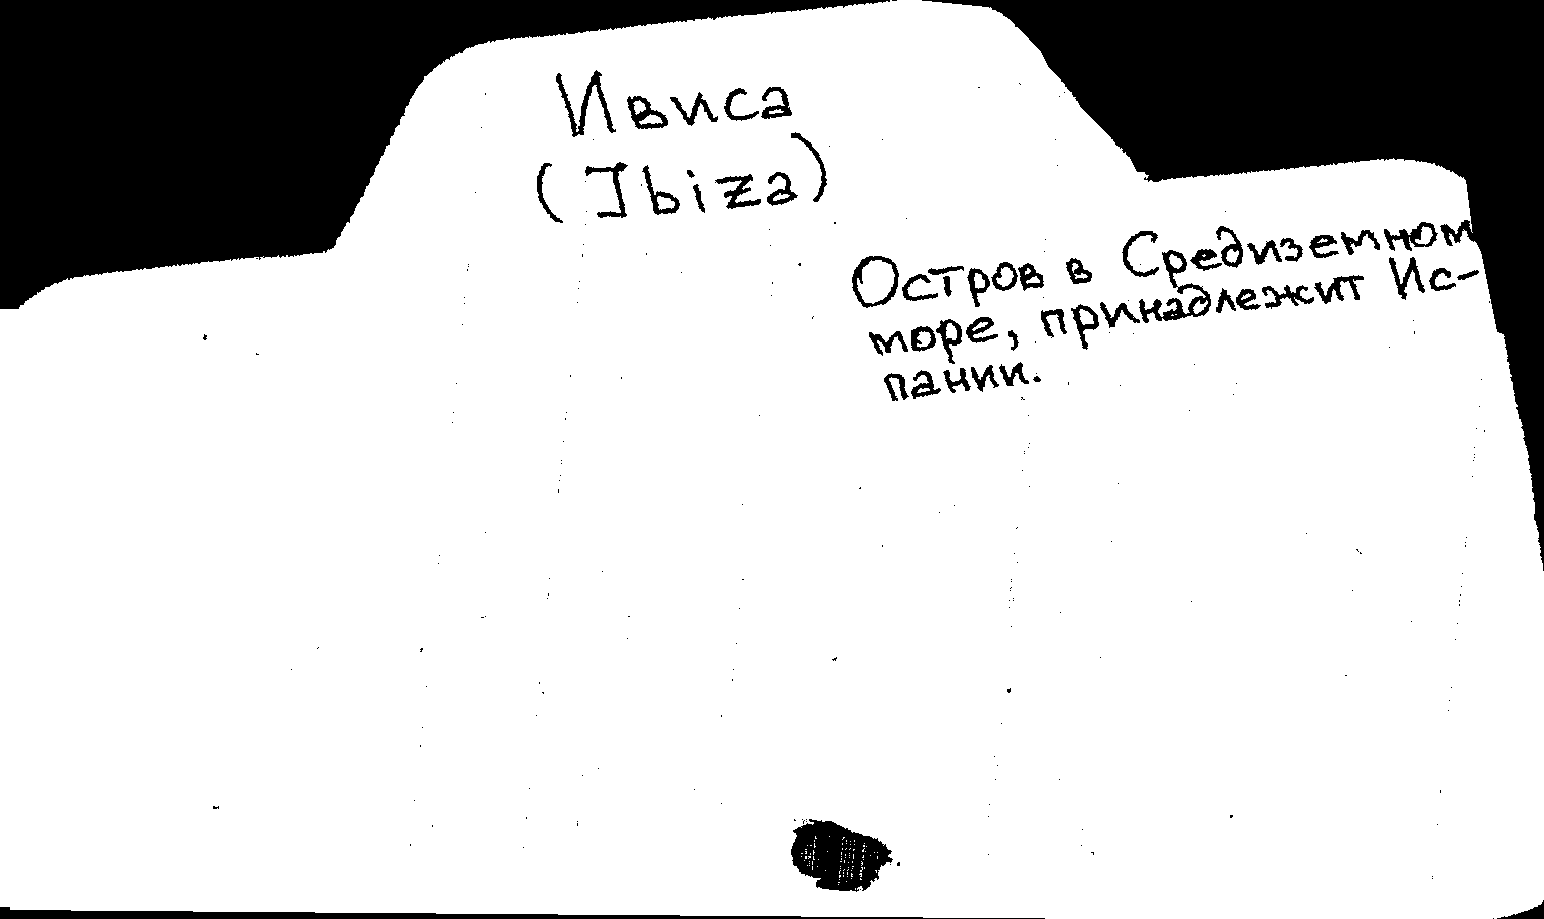 Ивиса
(Ibiza)
Остров в Средиземном
море, принадлежит Ис-
пании.